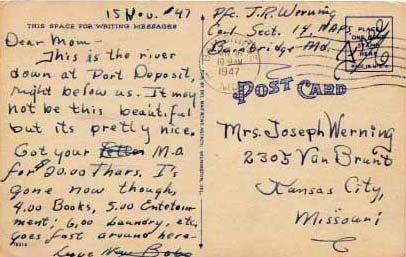 15 Nov. '47
THIS SPACE FOR WRITING MESSAGES
Dear Mom –
This is the river
down at Port Deposit,
right below us. It may
not be this beautiful
but its pretty nice.
Got your M.O
for $20.00 Thurs. It's
gone now though,
4.00 Books, 5.00
ment; 6.00 Laundry, etc.
goes fast around here–
Love
Pfc. J.R. Werning
Sect. 14, NAPS
Bainbridge Md.
1947
PLACE
STAMP
HERE
POST CARD
Mrs. Joseph Werning
2305 Van Brunt
Kansas City,
Missouri